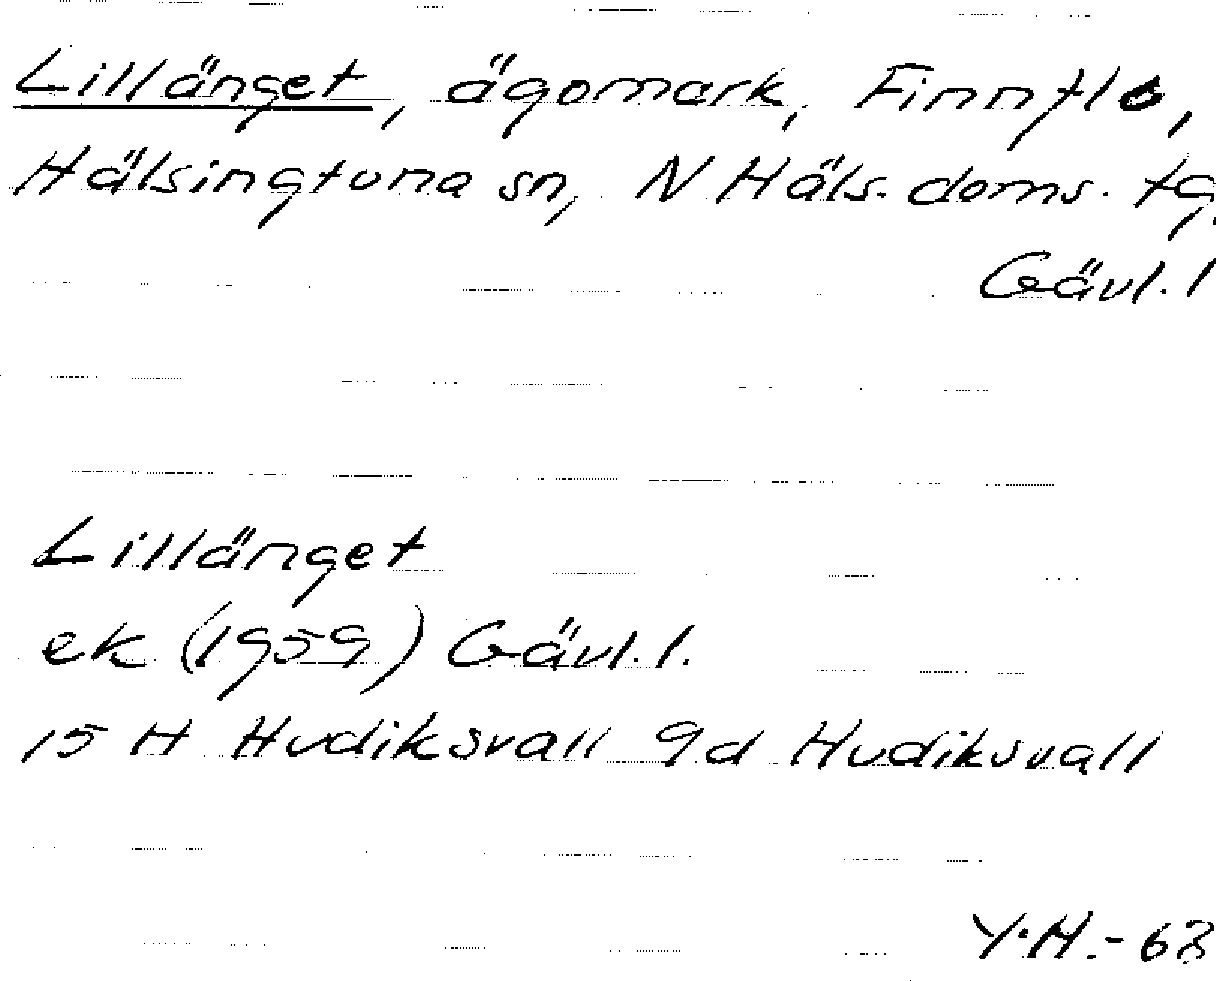 Lillänget, ägomark, Finnflo,
Hälsingtuna sn, N Häls. doms. tg,
Gävl. l
Lillänget
ek (1959) Gävl. l.
15 H Hudiksvall 9d Hudiksvall
Y.H.-68